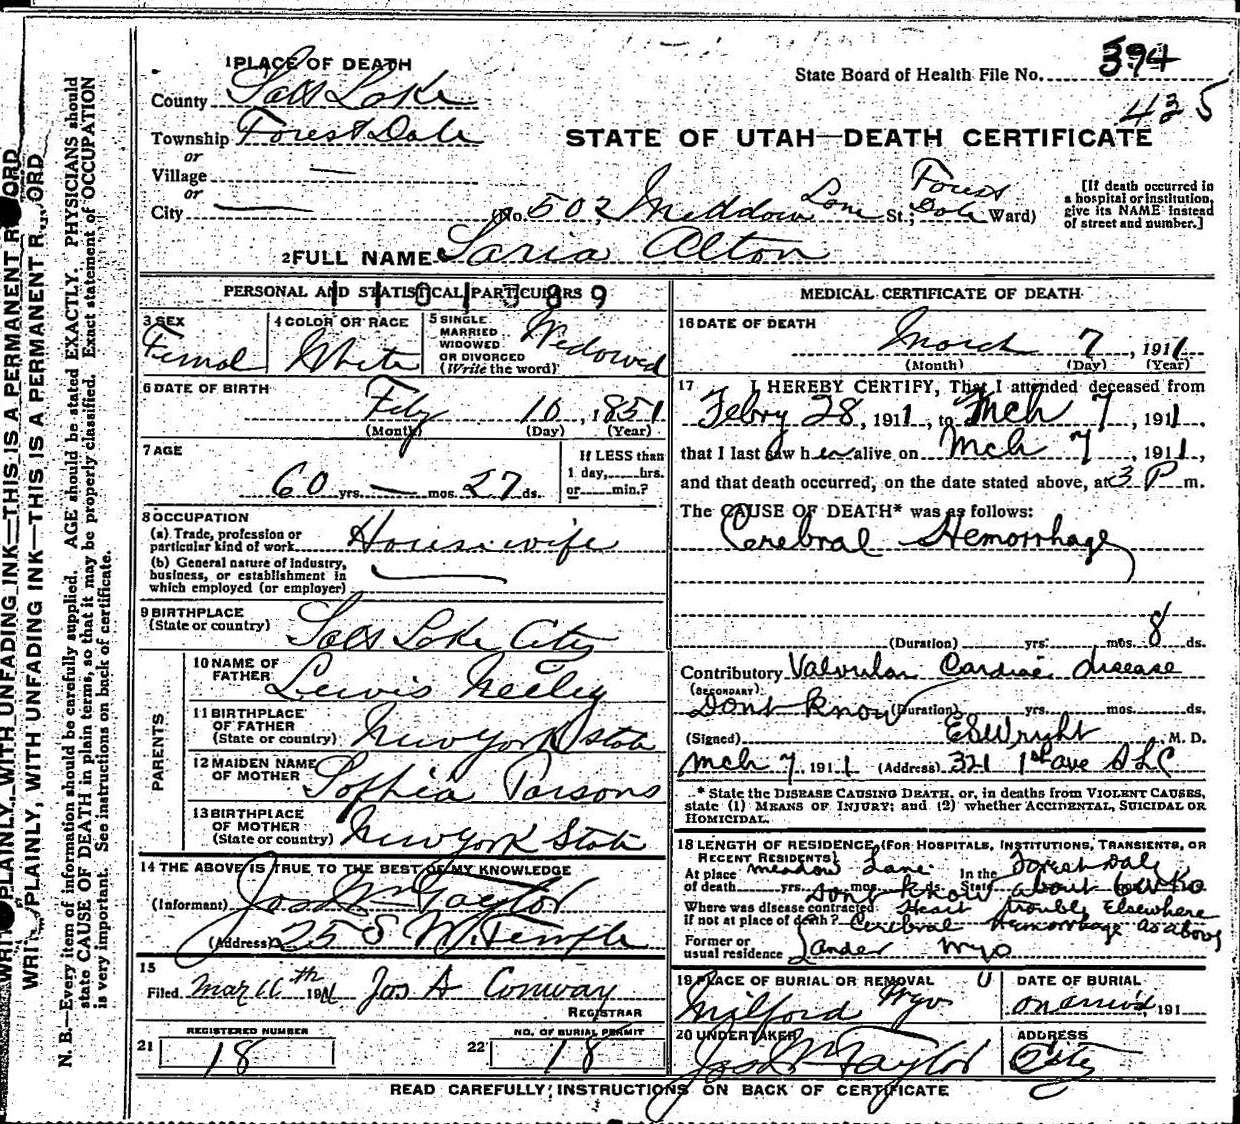 394
State Board of Health File No.
425
1 PLACE OF DEATH
County Salt Lake
Township Forest Dale
or
Village —
or
City —
STATE OF UTAH—DEATH CERTIFICATE
(No. 502 Meddow Lane St.; Forest Dale Ward)
[If death occurred in
a hospital or institution,
give its NAME instead
of street and number.]
2 FULL NAME Saria Alton
PERSONAL AND STATISTICAL PARTICULARS
3 SEX
Femal
4 COLOR OR RACE
White
5 SINGLE
MARRIED
WIDOWED
OR DIVORCED
(Write the word)
Widowed
6 DATE OF BIRTH
Feby 10, 1851
(Month) (Day) (Year)
7 AGE
60 yrs. — mos. 27 ds.
If LESS than
1 day,......hrs.
or......min.?
8 OCCUPATION
(a) Trade, profession or
particular kind of work
Housewife
(b) General nature of industry,
business, or establishment in
which employed (or employer)
9 BIRTHPLACE
(State or country)
Salt Lake City
PARENTS
10 NAME OF
FATHER
Lewis Neeley
11 BIRTHPLACE
OF FATHER
(State or country)
New York State
12 MAIDEN NAME
OF MOTHER
Soffhia Parsons
13 BIRTHPLACE
OF MOTHER
(State or country)
New York State
14 THE ABOVE IS TRUE TO THE BEST OF MY KNOWLEDGE
(Informant) Jos Wm Taylor
(Address) 25 S W. Temple
15
Filed Mar 11th 1911 Jos A Conway
REGISTRAR
REGISTERED NUMBER
21 18
NO. OF BURIAL PERMIT
22 18
MEDICAL CERTIFICATE OF DEATH
16 DATE OF DEATH
March 7, 1911
(Month) (Day) (Year)
17 I HEREBY CERTIFY, That I attended deceased from
Febry 28, 1911, to Mch 7, 1911,
that I last saw her alive on Mch 7, 1911,
and that death occurred, on the date stated above, at 3 P m.
The CAUSE OF DEATH* was as follows:
Cerebral Hemorrhage
(Duration) yrs. mos. 8 ds.
Contributory Valvular Cardiac disease
(SECONDARY)
Dont know (Duration) yrs. mos. ds.
(Signed) E S Wright M. D.
Mch 7, 1911 (Address) 321 1st ave S L C
* State the DISEASE CAUSING DEATH, or, in deaths from VIOLENT CAUSES,
state (1) MEANS OF INJURY; and (2) whether ACCIDENTAL, SUICIDAL OR
HOMICIDAL.
18 LENGTH OF RESIDENCE (FOR HOSPITALS, INSTITUTIONS, TRANSIENTS, OR
RECENT RESIDENTS)
At place meadow Lane In the Forest Dale
of death yrs. mos. ds. State about
Dont know
Where was disease contracted Heart trouble Elsewhere
If not at place of death? Cerebral Hemorrhage as above
Former or
usual residence Lander Wyo
19 PLACE OF BURIAL OR REMOVAL
Milford Wyo
DATE OF BURIAL
191
20 UNDERTAKER
Jos Wm Taylor
ADDRESS
City
READ CAREFULLY INSTRUCTIONS ON BACK OF CERTIFICATE
WRITE PLAINLY, WITH UNFADING INK—THIS IS A PERMANENT RECORD
WRITE PLAINLY, WITH UNFADING INK—THIS IS A PERMANENT R ORD
N. B.—Every item of information should be carefully supplied. AGE should be stated EXACTLY. PHYSICIANS should
state CAUSE OF DEATH in plain terms, so that it may be properly classified. Exact statement of OCCUPATION
is very important. See instructions on back of certificate.